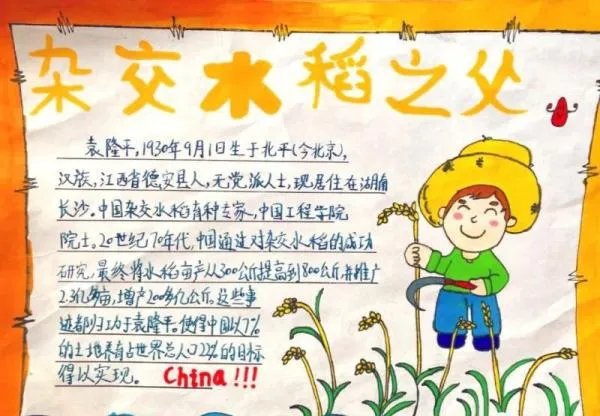 杂交水稻之父
袁隆平，1930年9月1日生于北平(今北京)，
汉族，江西省德安县人，无党派人士，现居住在湖南
长沙。中国杂交水稻育种专家，中国工程学院
院士。20世纪70年代，中国通过对杂交水稻的成功
研究，最终将水稻亩产从300公斤提高到800公斤并推广
2.3亿多亩，增产200多亿公斤。这些事
迹都归功于袁隆平。使得中国以7%
的土地养育占世界总人口22%的目标
得以实现。 China!!!